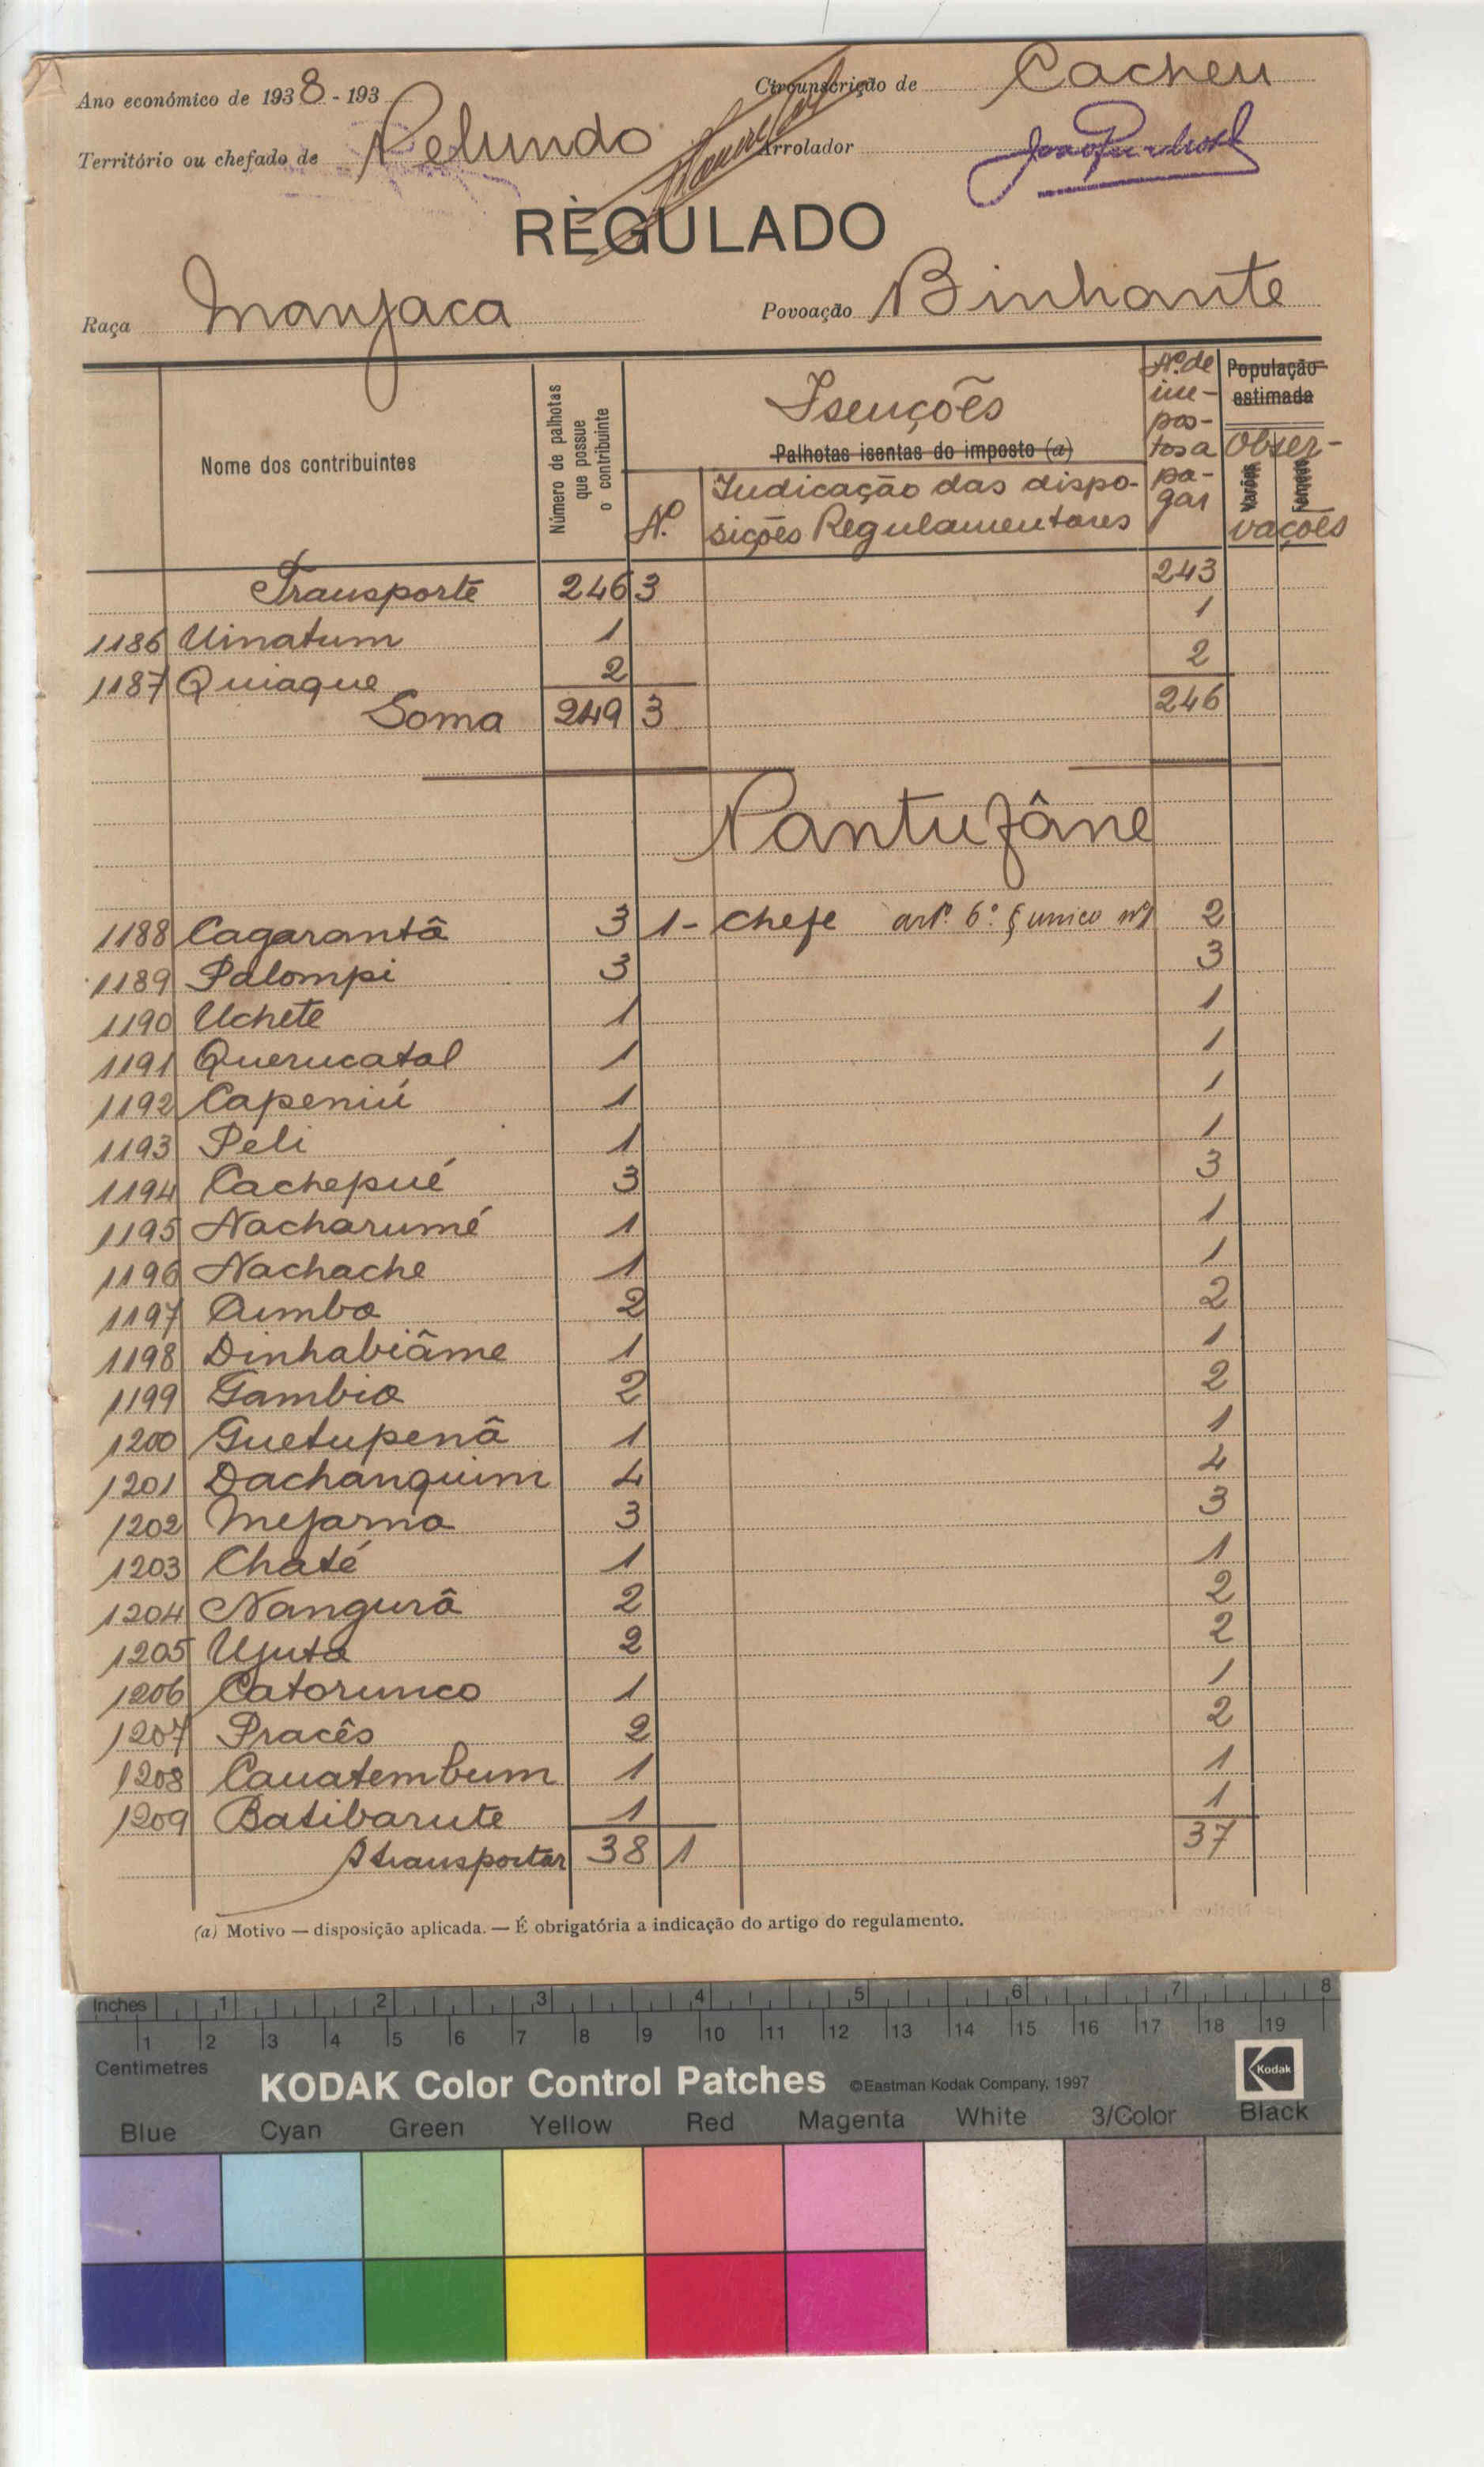 Ano económico de 1938 - 193 Circunscrição de Cacheu
Território ou chefado de Pelundo Arrolador
REGULADO
Raça Manjaca Povoação Binhante
Nome dos contribuintes
Número de palhotas que possue o contribuinte
Isenções
Palhotas isentas do imposto (a)
Nº
Indicação das dispo-
sições Regulamentares
Nº de im-pos-tos a pa-gar
População estimada
Obser-
Varões Femeas
vações
Transporte 246 3 243
1186 Uinatum 1 1
1187 Quiaque 2 2
Soma 249 3 246
Pantufâne
1188 Cagarantâ 3 1- chefe artº 6º § unico nº1 2
1189 Palompi 3 3
1190 Uchete 1 1
1191 Querucatal 1 1
1192 Capeniú 1 1
1193 Peli 1 1
1194 Cachepué 3 3
1195 Nacharumé 1 1
1196 Nachache 1 1
1197 Cumba 2 2
1198 Dinhabiâme 1 1
1199 Gambia 2 2
1200 Guetupenâ 1 1
1201 Dachanquim 4 4
1202 Mejarma 3 3
1203 Chaté 1 1
1204 Nangurâ 2 2
1205 Ujuta 2 2
1206 Catorunco 1 1
1207 Pracês 2 2
1208 Cauatembum 1 1
1209 Batibarute 1 1
A transportar 38 1 37
(a) Motivo — disposição aplicada. — É obrigatória a indicação do artigo do regulamento.
Inches 1 2 3 4 5 6 7 8
1 2 3 4 5 6 7 8 9 10 11 12 13 14 15 16 17 18 19
Centimetres
KODAK Color Control Patches ©Eastman Kodak Company, 1997 Kodak
Blue Cyan Green Yellow Red Magenta White 3/Color Black